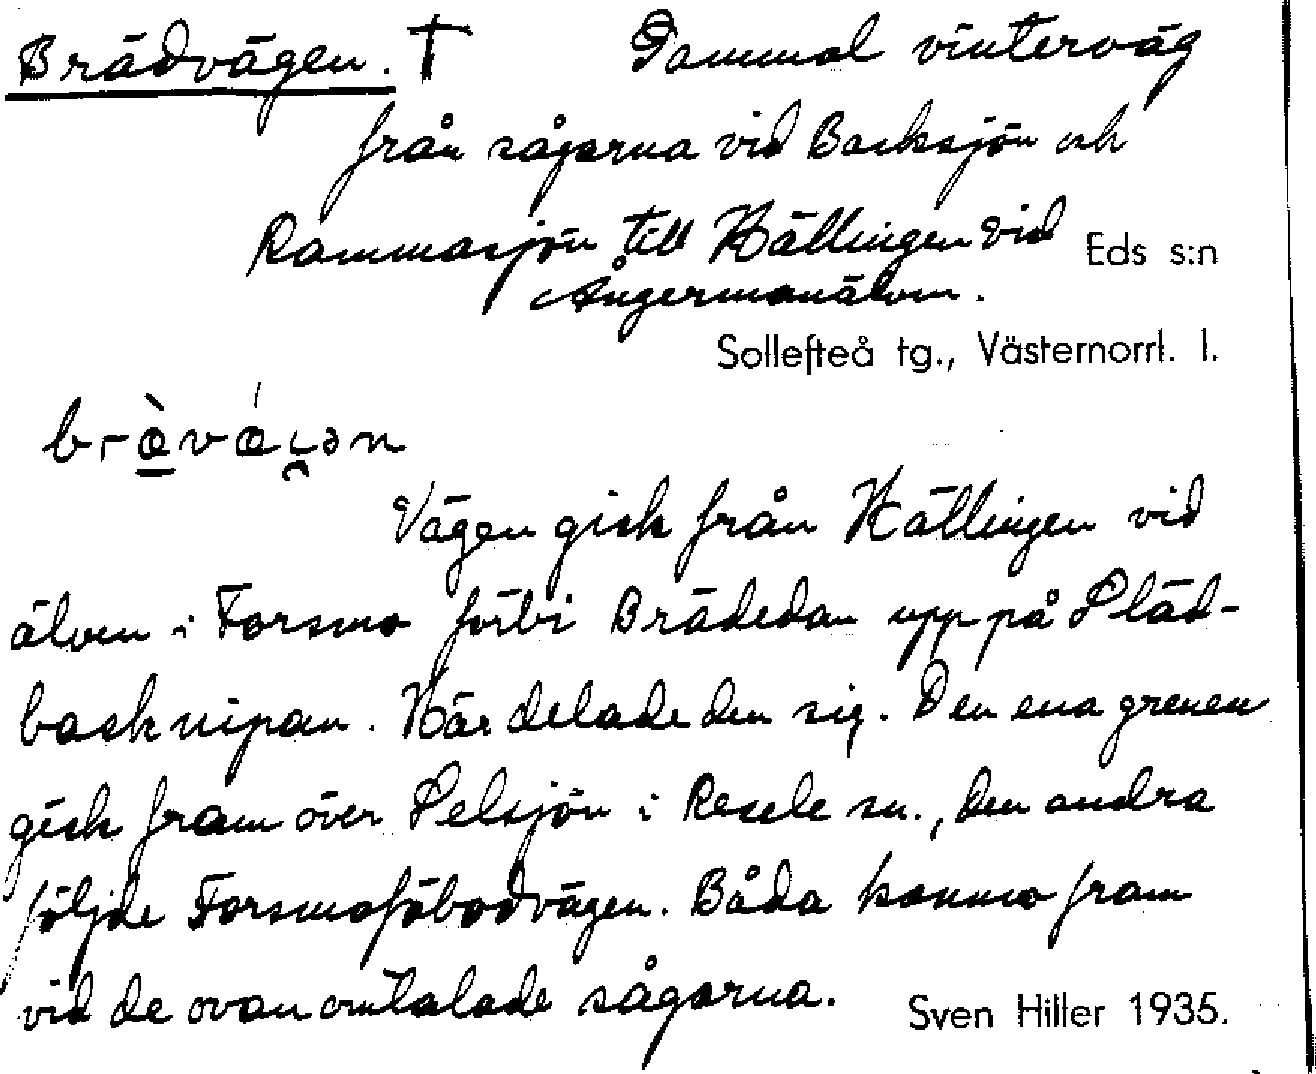 Brädvägen. † Gammal vinterväg
från sågarna vid Backsjön och
Rammasjön till Hällingen vid Eds s:n
Ångermanälven.
Sollefteå tg., Västernorrl. l.
Vägen gick från Hällingen vid
älven i Forsmo förbi Brädedan upp på Släd-
backnipan. Här delade den sig. Den ena grenen
gick fram över Selsjön i Resele sn., den andra
följde Forsmofäbodvägen. Båda kommo fram
vid de ovan omtalade sågarna. Sven Hiller 1935.